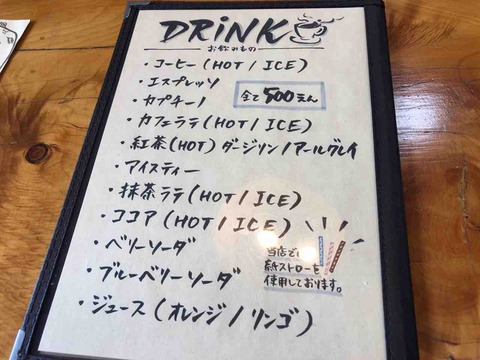 DRINK
お飲みもの
・コーヒー(HOT/ICE)
・エスプレッソ
・カプチーノ
全て500えん
・カフェラテ(HOT/ICE)
・紅茶(HOT)ダージリン/アールグレイ
・アイスティー
・抹茶ラテ(HOT/ICE)
・ココア(HOT/ICE)
・ベリーソーダ
・ブルーベリーソーダ
・ジュース(オレンジ/リンゴ)
当店では
紙ストローを
使用しております。